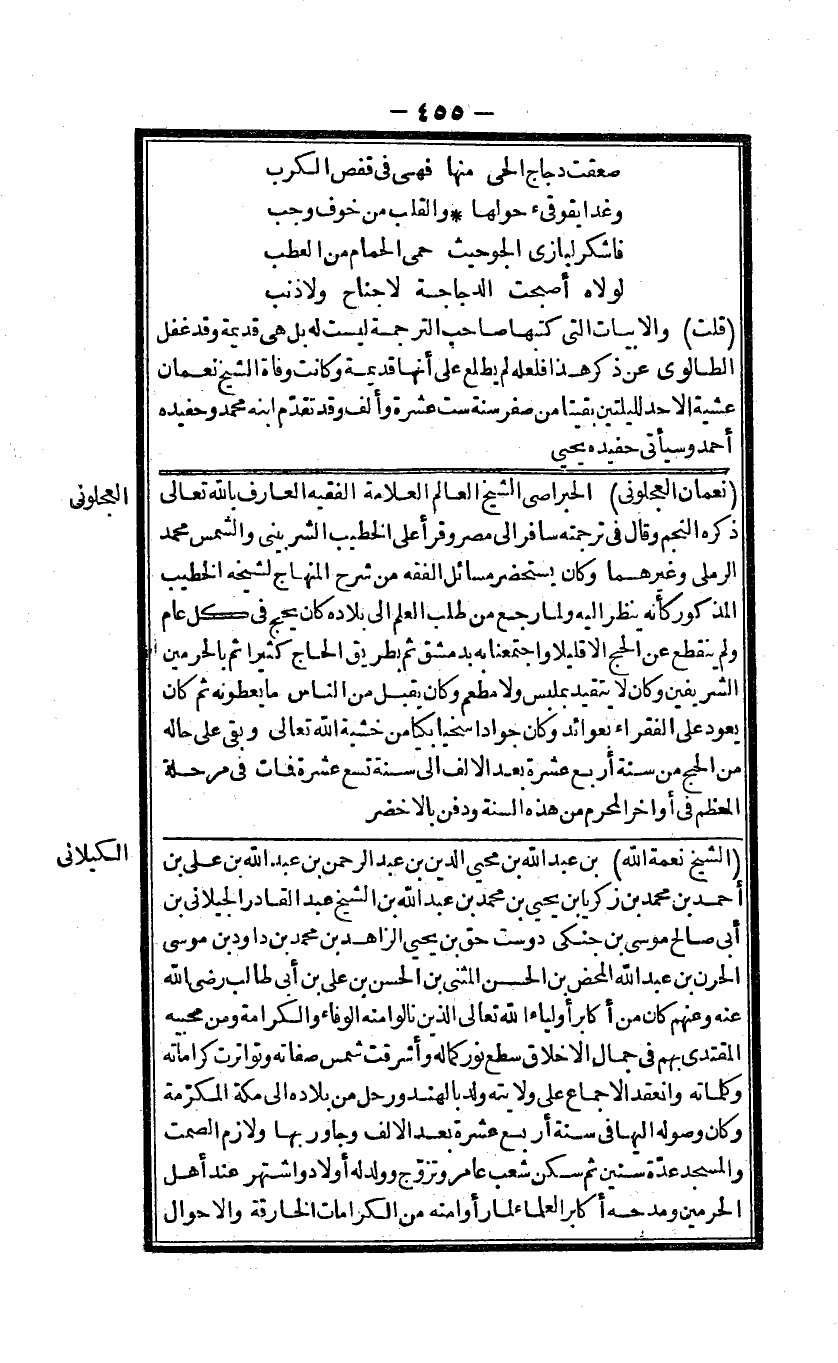 — ٤٥٥ —
صعقت دجاج الحى منها فهى فى قفص الكرب
وغدا يقوقىء حولها * والقلب من خوف وجب
فاشكر لبازى الجوحيث حمى الحمام من العطب
لولاه أصبحت الدجاجة لاجناح ولاذنب
(قلت) والابيات التى كتبها صاحب الترجمة ليست له بل هى قديمة وقد غفل
الطالوى عن ذكر هذا فلعله لم يطلع على أنها قديمة وكانت وفاة الشيخ نعمان
عشية الاحد لليلتين بقيتا من صفر سنة ست عشرة وألف وقد تقدّم ابنه محمد وحفيده
أحمد وسيأتى حفيده يحيى
العجلونى
(نعمان العجلونى) الحبراصى الشيخ العالم العلامة الفقيه العارف بالله تعالى
ذكره النجم وقال فى ترجمته سافر الى مصر وقرأ على الخطيب الشربينى والشمس محمد
الرملى وغيرهما وكان يستحضر مسائل الفقه من شرح المنهاج لشيخه الخطيب
المذكور كأنه ينظر اليه ولما رجع من طلب العلم الى بلاده كان يحج فى كل عام
ولم ينقطع عن الحج الاقليلا واجتمعنا به بدمشق ثم بطريق الحاج كثيرا ثم بالحرمين
الشريفين وكان لا يتقيد بملبس ولا مطعم وكان يقبل من الناس ما يعطونه ثم كان
يعود على الفقراء بعوائد وكان جوادا سخيا بكا من خشية الله تعالى وبقى على حاله
من الحج من سنة أربع عشرة بعد الالف الى سنة تسع عشرة فات فى مرحلة
المعظم فى أواخر المحرم من هذه السنة ودفن بالاخضر
الكيلانى
(الشيخ نعمة الله) بن عبد الله بن محيى الدين بن عبد الرحمن بن عبد الله بن على بن
أحمد بن محمد بن زكريا بن يحيى بن محمد بن عبد الله بن الشيخ عبد القادر الجيلانى بن
أبى صالح موسى بن جنكى دوست حق بن يحيى الزاهد بن محمد بن داود بن موسى
الحرن بن عبد الله المحض بن الحسن المثنى بن الحسن بن على بن أبى طالب رضى الله
عنه وعنهم كان من أكابر أولياء الله تعالى الذين نالوا منه الوفاء والكرامة ومن محبيه
المقتدى بهم فى جمال الاخلاق سطع نور كماله وأشرقت شمس صفاته وتواترت كراماته
وكلماته وانعقد الاجماع على ولايته ولد بالهند ورحل من بلاده الى مكة المكرّمة
وكان وصوله اليها فى سنة أربع عشرة بعد الالف وجاور بها ولازم الصمت
والمسجد عدّة سنين ثم سكن شعب عامر وتزوّج وولد له أولاد واشتهر عند أهل
الحرمين ومدحه أكابر العلماء لما رأوا منه من الكرامات الخارقة والاحوال